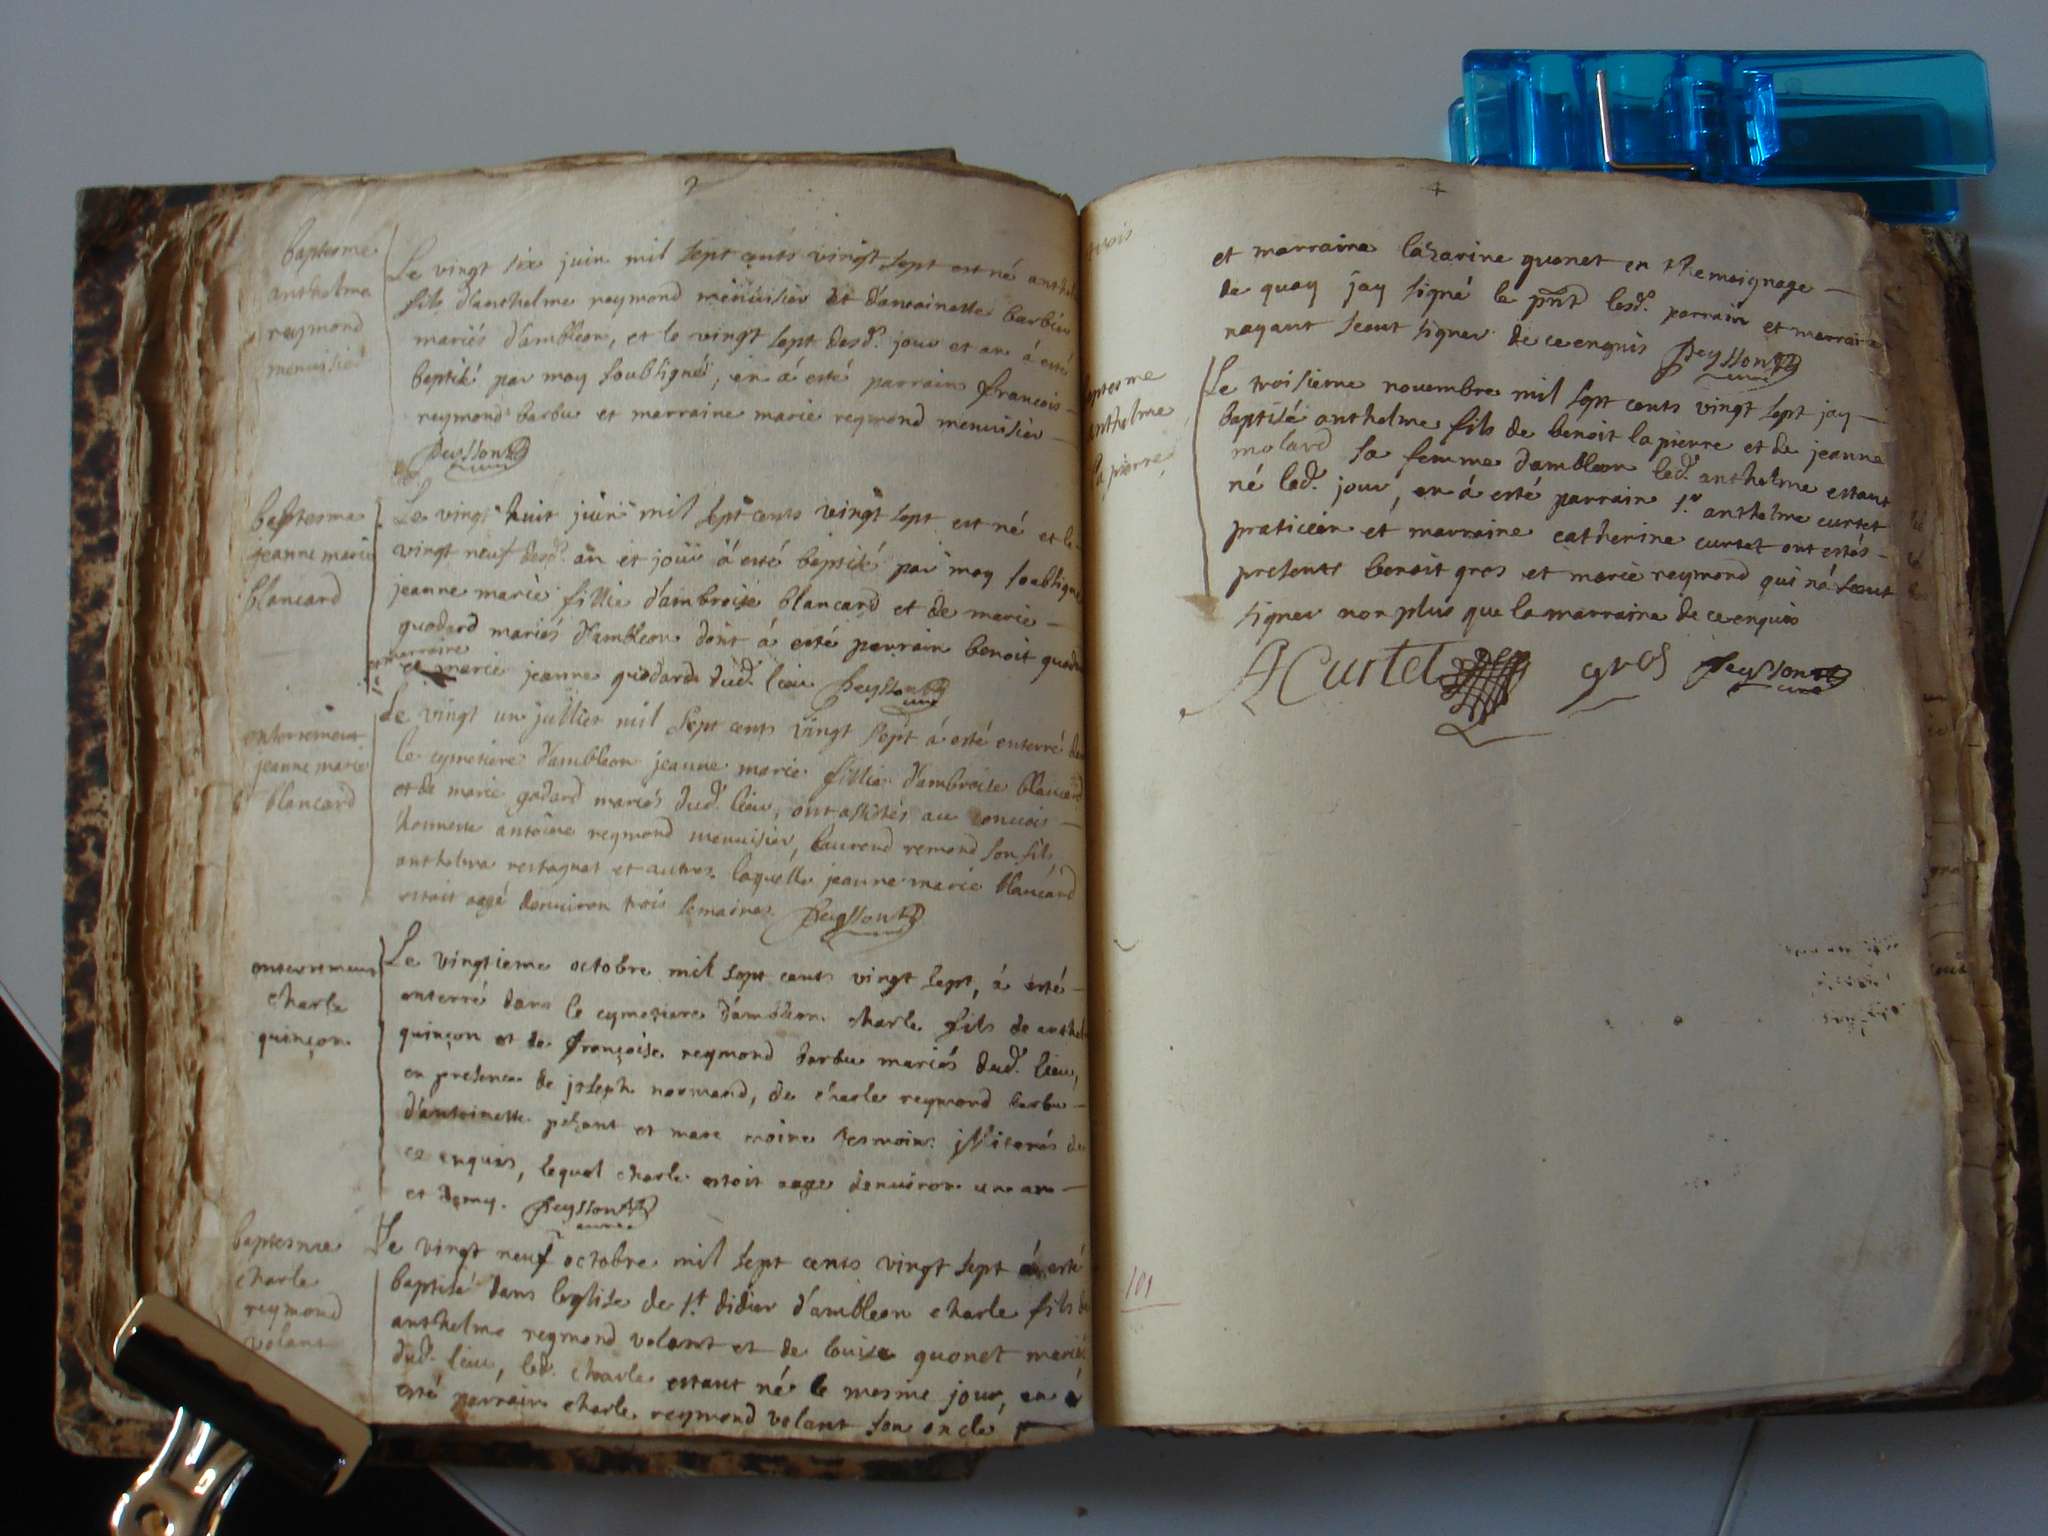 baptesme
anthelme
reymond
menuisié
Le vingt six juin mil sept cents vingt sept est né anthel
fils d'anthelme reymond menuisier et d'antoinette barbier
mariés d'ambleon, et le vingt sept desd. jour et an á esté
baptisé par moy soubsigné, en á esté parrain francois
reymond barbu et marraine marie reymond menuisier
Peysson curé
baptesme
jeanne marie
blancard
Le vingt huit juin mil sept cents vingt sept est né et le
vingt neuf desd. an et jour á esté baptisé par moy soubsigné
jeanne marie fillie d'ambroise blancard et de marie
guodard mariés d'ambleon dont á esté parrain benoit guodard
et marraine
marie jeanne guodard dud. lieu Peysson curé
enterrement
jeanne marie
blancard
Le vingt un jullier mil sept cents vingt sept á esté enterré dans
le cymetiere d'ambleon jeanne marie fillie d'ambroise blancard
et de marie godard mariés dud. lieu, ont assistés au convois
honneste antoine reymond menuisier, laurend remond son fils,
anthelme restagnat et autres. laquelle jeanne marie blancard
estoit aagé denviron trois semaines Peysson curé
enterrement
charle
quinçon
Le vingtieme octobre mil sept cents vingt sept, á esté
enterré dans le cymetiere d'ambleon charle fils de anthel
quinçon et de françoise reymond barbu mariés dud. lieu,
en presence de joseph normand, de charle reymond barbu
d'antoinette pezant et marc moine tesmoins illiterés de
ce enquis, lequel charle estoit aagé denviron un an
et demy. Peysson curé
baptesme
charle
reymond
volant
Le vingt neuf octobre mil sept cents vingt sept á esté
baptisé dans leglise de st didier d'ambleon charle fils de
anthelme reymond volant et de louise quonet mariés
dud. lieu, led. charle estant né le mesme jour, en á
esté parrain charle reymond volant son oncle
et marraine lazarine quonet en themoignage
de quoy jay signé le pnt lesd. parrain et marraine
nayant sceut signer de ce enquis Peysson curé
baptesme
anthelme
la pierre
Le troisieme novembre mil sept cents vingt sept jay
baptisé anthelme fils de benoit la pierre et de jeanne
molard sa femme d'ambleon led. anthelme estant
né led. jour, en á esté parrain sr anthelme curtet
praticien et marraine catherine curtet ont estés
presents benoit gros et marie reymond qui ná sceut
signer non plus que la marraine de ce enquis
A Curtet gros Peysson curé
101